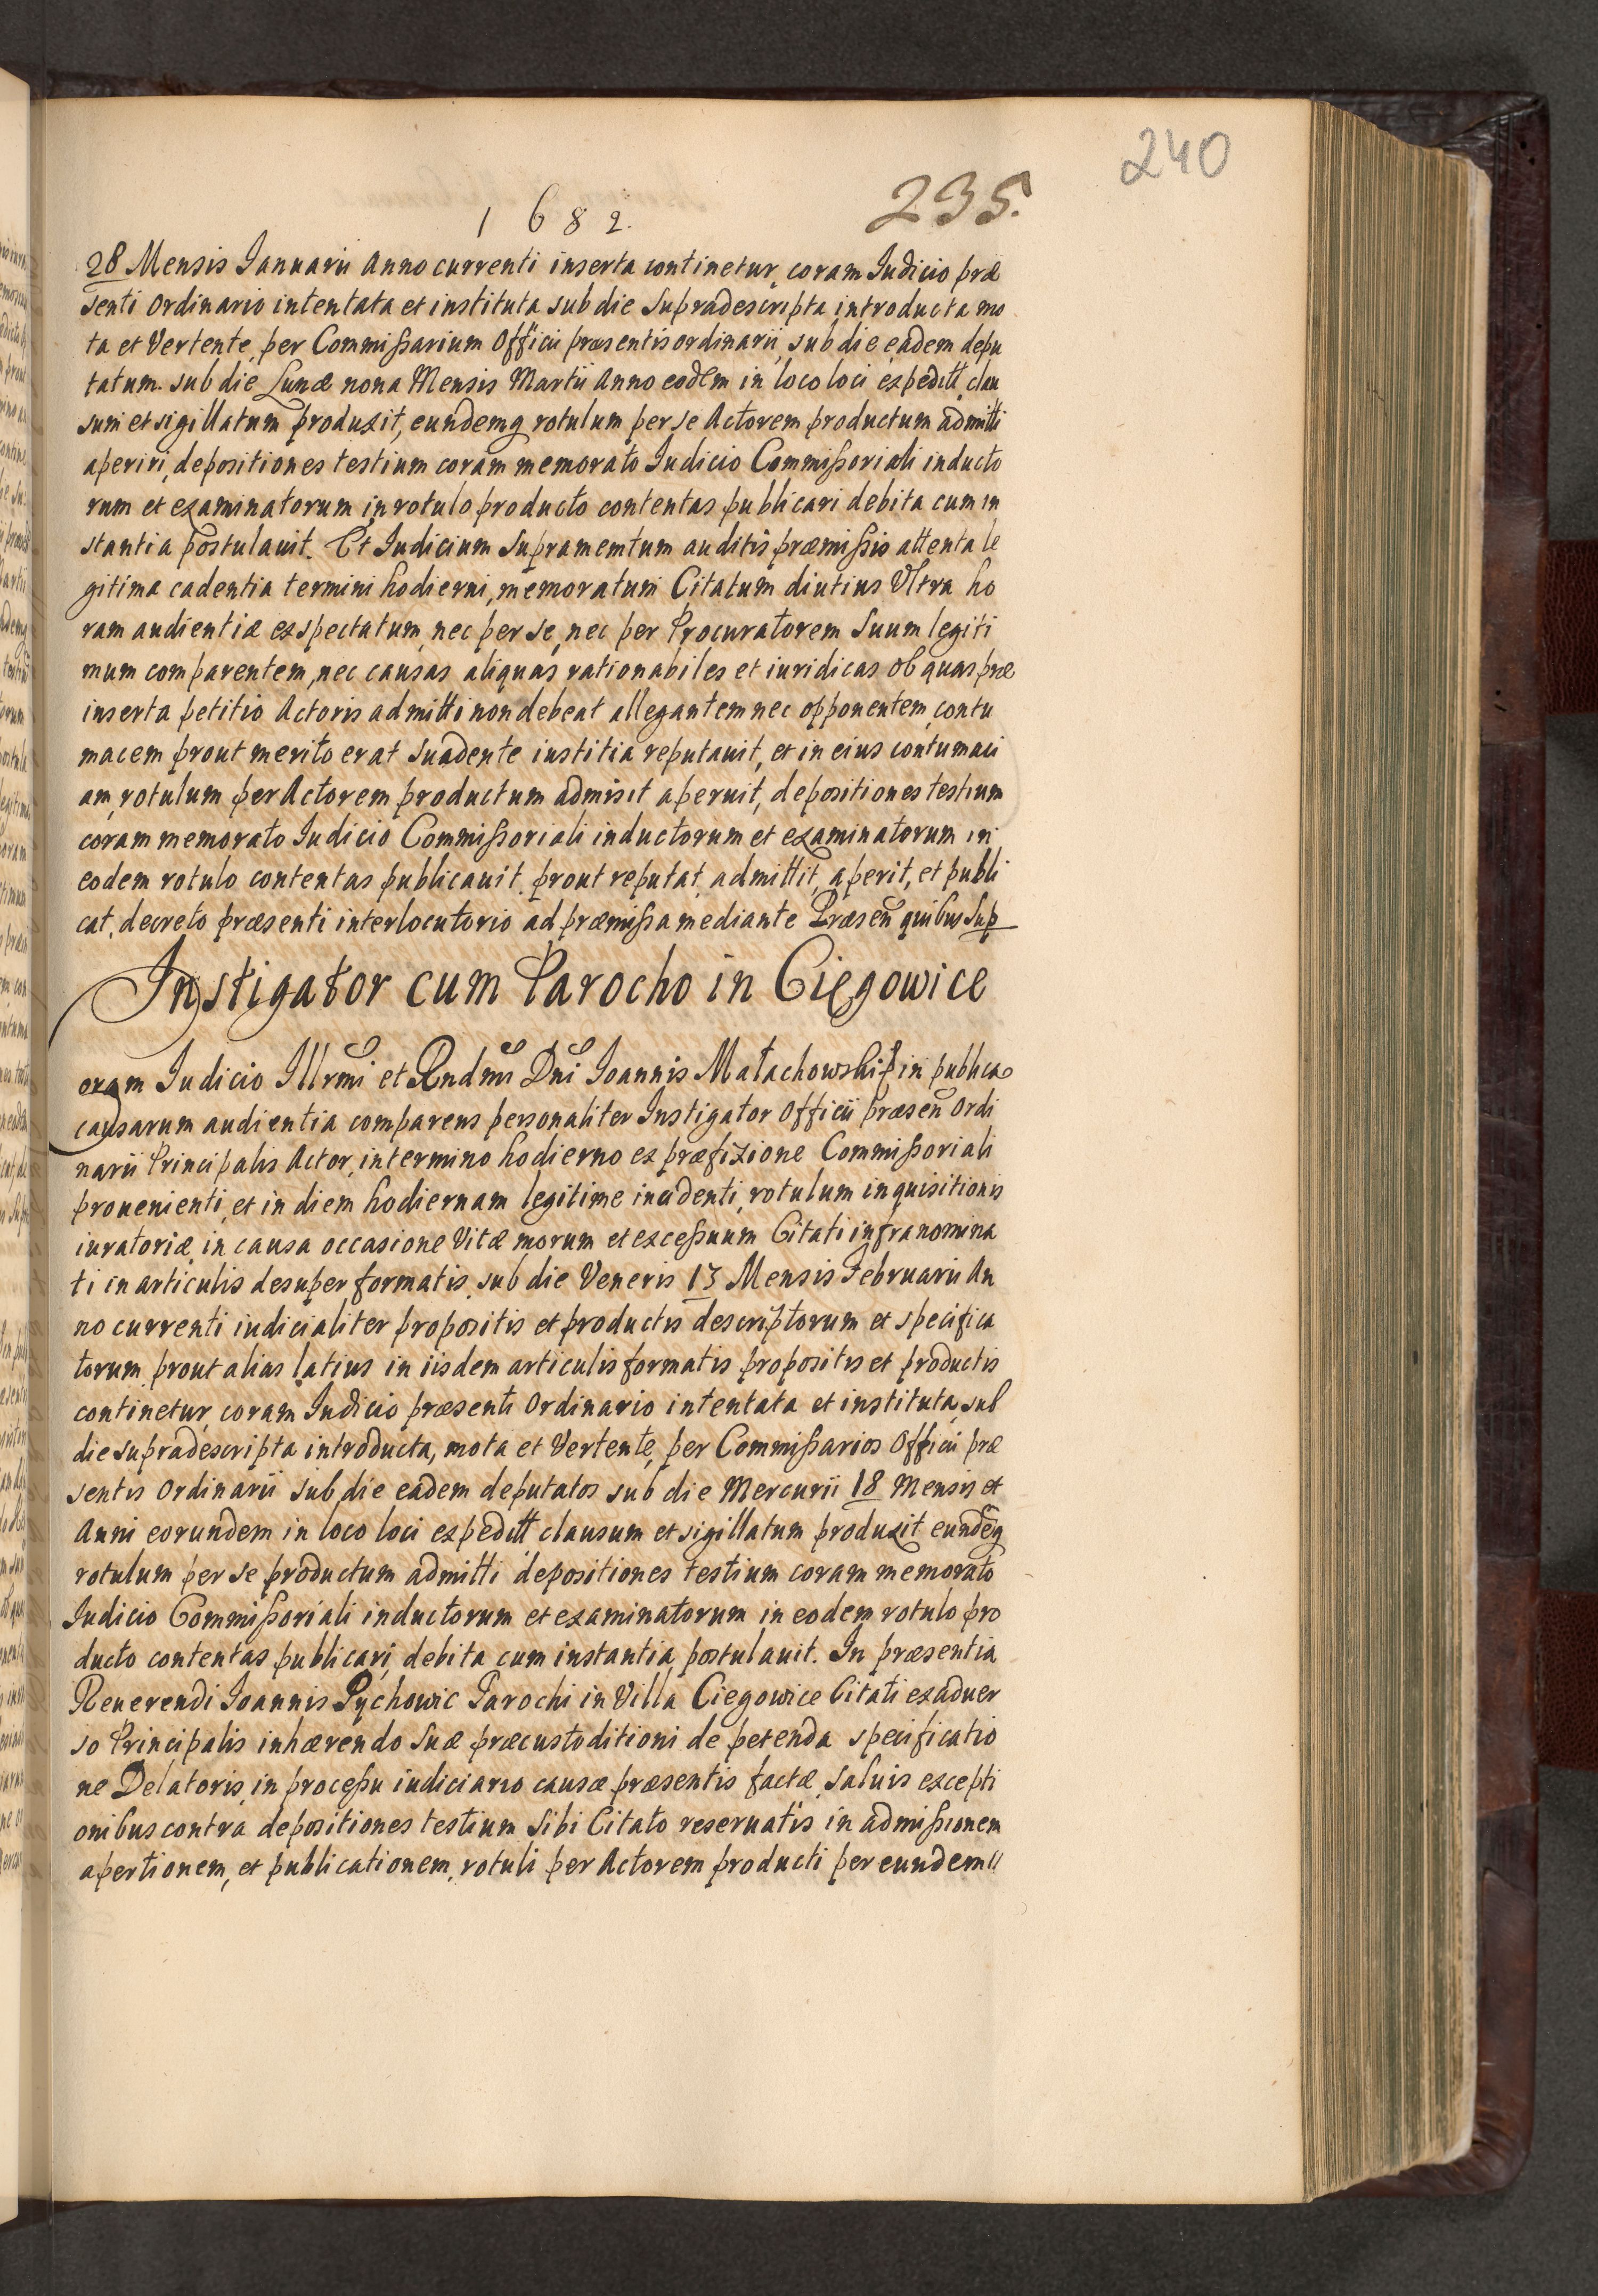 240
235.
1682.
28 Mensis Ianuarii Anno currenti inserta continetur, coram Iudicio præ
senti Ordinario intentata et instituta sub die Supradescripta introducta mo
ta et Vertente, per Commissarium Officii præsentis ordinarii, sub die eadem depu
tatum. sub die Lunæ nona Mensis Martii Anno eodem in loco loci expeditt clau
sum et sigillatum produxit, eundemq rotulum per se Actorem productum admitti
aperiri, depositiones testium coram memorato Iudicio Commissoriali inducto
rum et examinatorum in rotulo producto contentas publicari debita cum in
stantia postulauit. Et Iudicium Supramemtum auditis præmissis attenta le
gitima cadentia termini hodierni, memoratum Citatum diutius Vltra ho
ram audientiæ exspectatum, nec per se, nec per Procuratorem Suum legiti
mum comparentem, nec causas aliquas rationabiles et iuridicas ob quas præ
inserta petitio Actoris admitti non debeat allegantem nec opponentem, contu
macem prout merito erat Suadente iustitia reputauit, et in eius contumaci
am, rotulum per Actorem productum admisit aperuit, depositiones testium
coram memorato Iudicio Commissoriali inductorum et examinatorum in
eodem rotulo contentas publicauit. prout reputat, admittit, aperit, et publi
cat. decreto præsenti interlocutorio ad præmissa mediante Præsen quibus Sup
Instigator cum Parocho in Cięgowice
oram Iudicio Illrmi et Rndmi Dni Ioannis Małachowski in publica
causarum audientia comparens personaliter Instigator Officii præsen Ordi
narii Principalis Actor, in termino hodierno ex præfixione Commissoriali
prouenienti, et in diem hodiernam legitime incidenti, rotulum inquisitionis
iuratoriæ in causa occasione Vitæ morum et excessuum Citati infranomina
ti in articulis desuper formatis, sub die Veneris 13 Mensis Februarii An
no currenti iudicialiter propositis et productis descriptorum et specifica
torum prout alias latius in iisdem articulis formatis propositis et productis
continetur, coram Iudicio præsenti Ordinario intentata et instituta, sub
die supradescripta introducta, mota et Vertente, per Commissarios Officii præ
sentis Ordinarii sub die eadem deputatos sub die Mercurii 18 Mensis et
Anni eorundem in loco loci expeditt clausum et sigillatum produxit eundēq
rotulum per se productum admitti depositiones testium coram memorato
Iudicio Commissoriali inductorum et examinatorum in eodem rotulo pro
ducto contentas publicari, debita cum instantia postulauit. In præsentia
Reuerendi Ioannis Pychowic Parochi in Villa Ciegowice Citati ex aduer
so Principalis inhærendo Suæ præcustoditioni de petenda specificatio
ne Delatoris, in processu iudiciario causæ præsentis factæ, saluis excepti
onibus contra depositiones testium Sibi Citato reseruatis in admissionem
apertionem, et publicationem, rotuli per Actorem producti per eundem